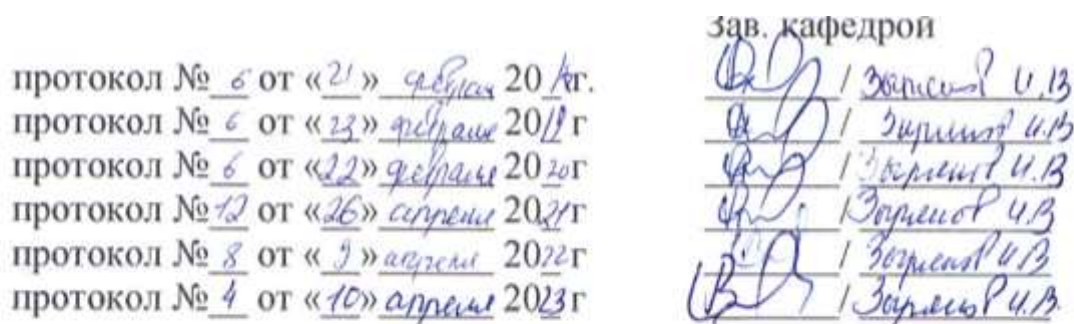 Зав. кафедрой
протокол № 6 от «21» февраля 20 г. / Зырянов И.В
протокол № 6 от «23» февраля 2019 г / Зырянов И.В
протокол № 6 от «22» февраля 2020 г / Зырянов И.В
протокол № 12 от «26» апреля 2021 г / Зырянов И.В
протокол № 8 от «9» апреля 2022 г / Зырянов И.В
протокол № 4 от «10» апреля 2023 г / Зырянов И.В.